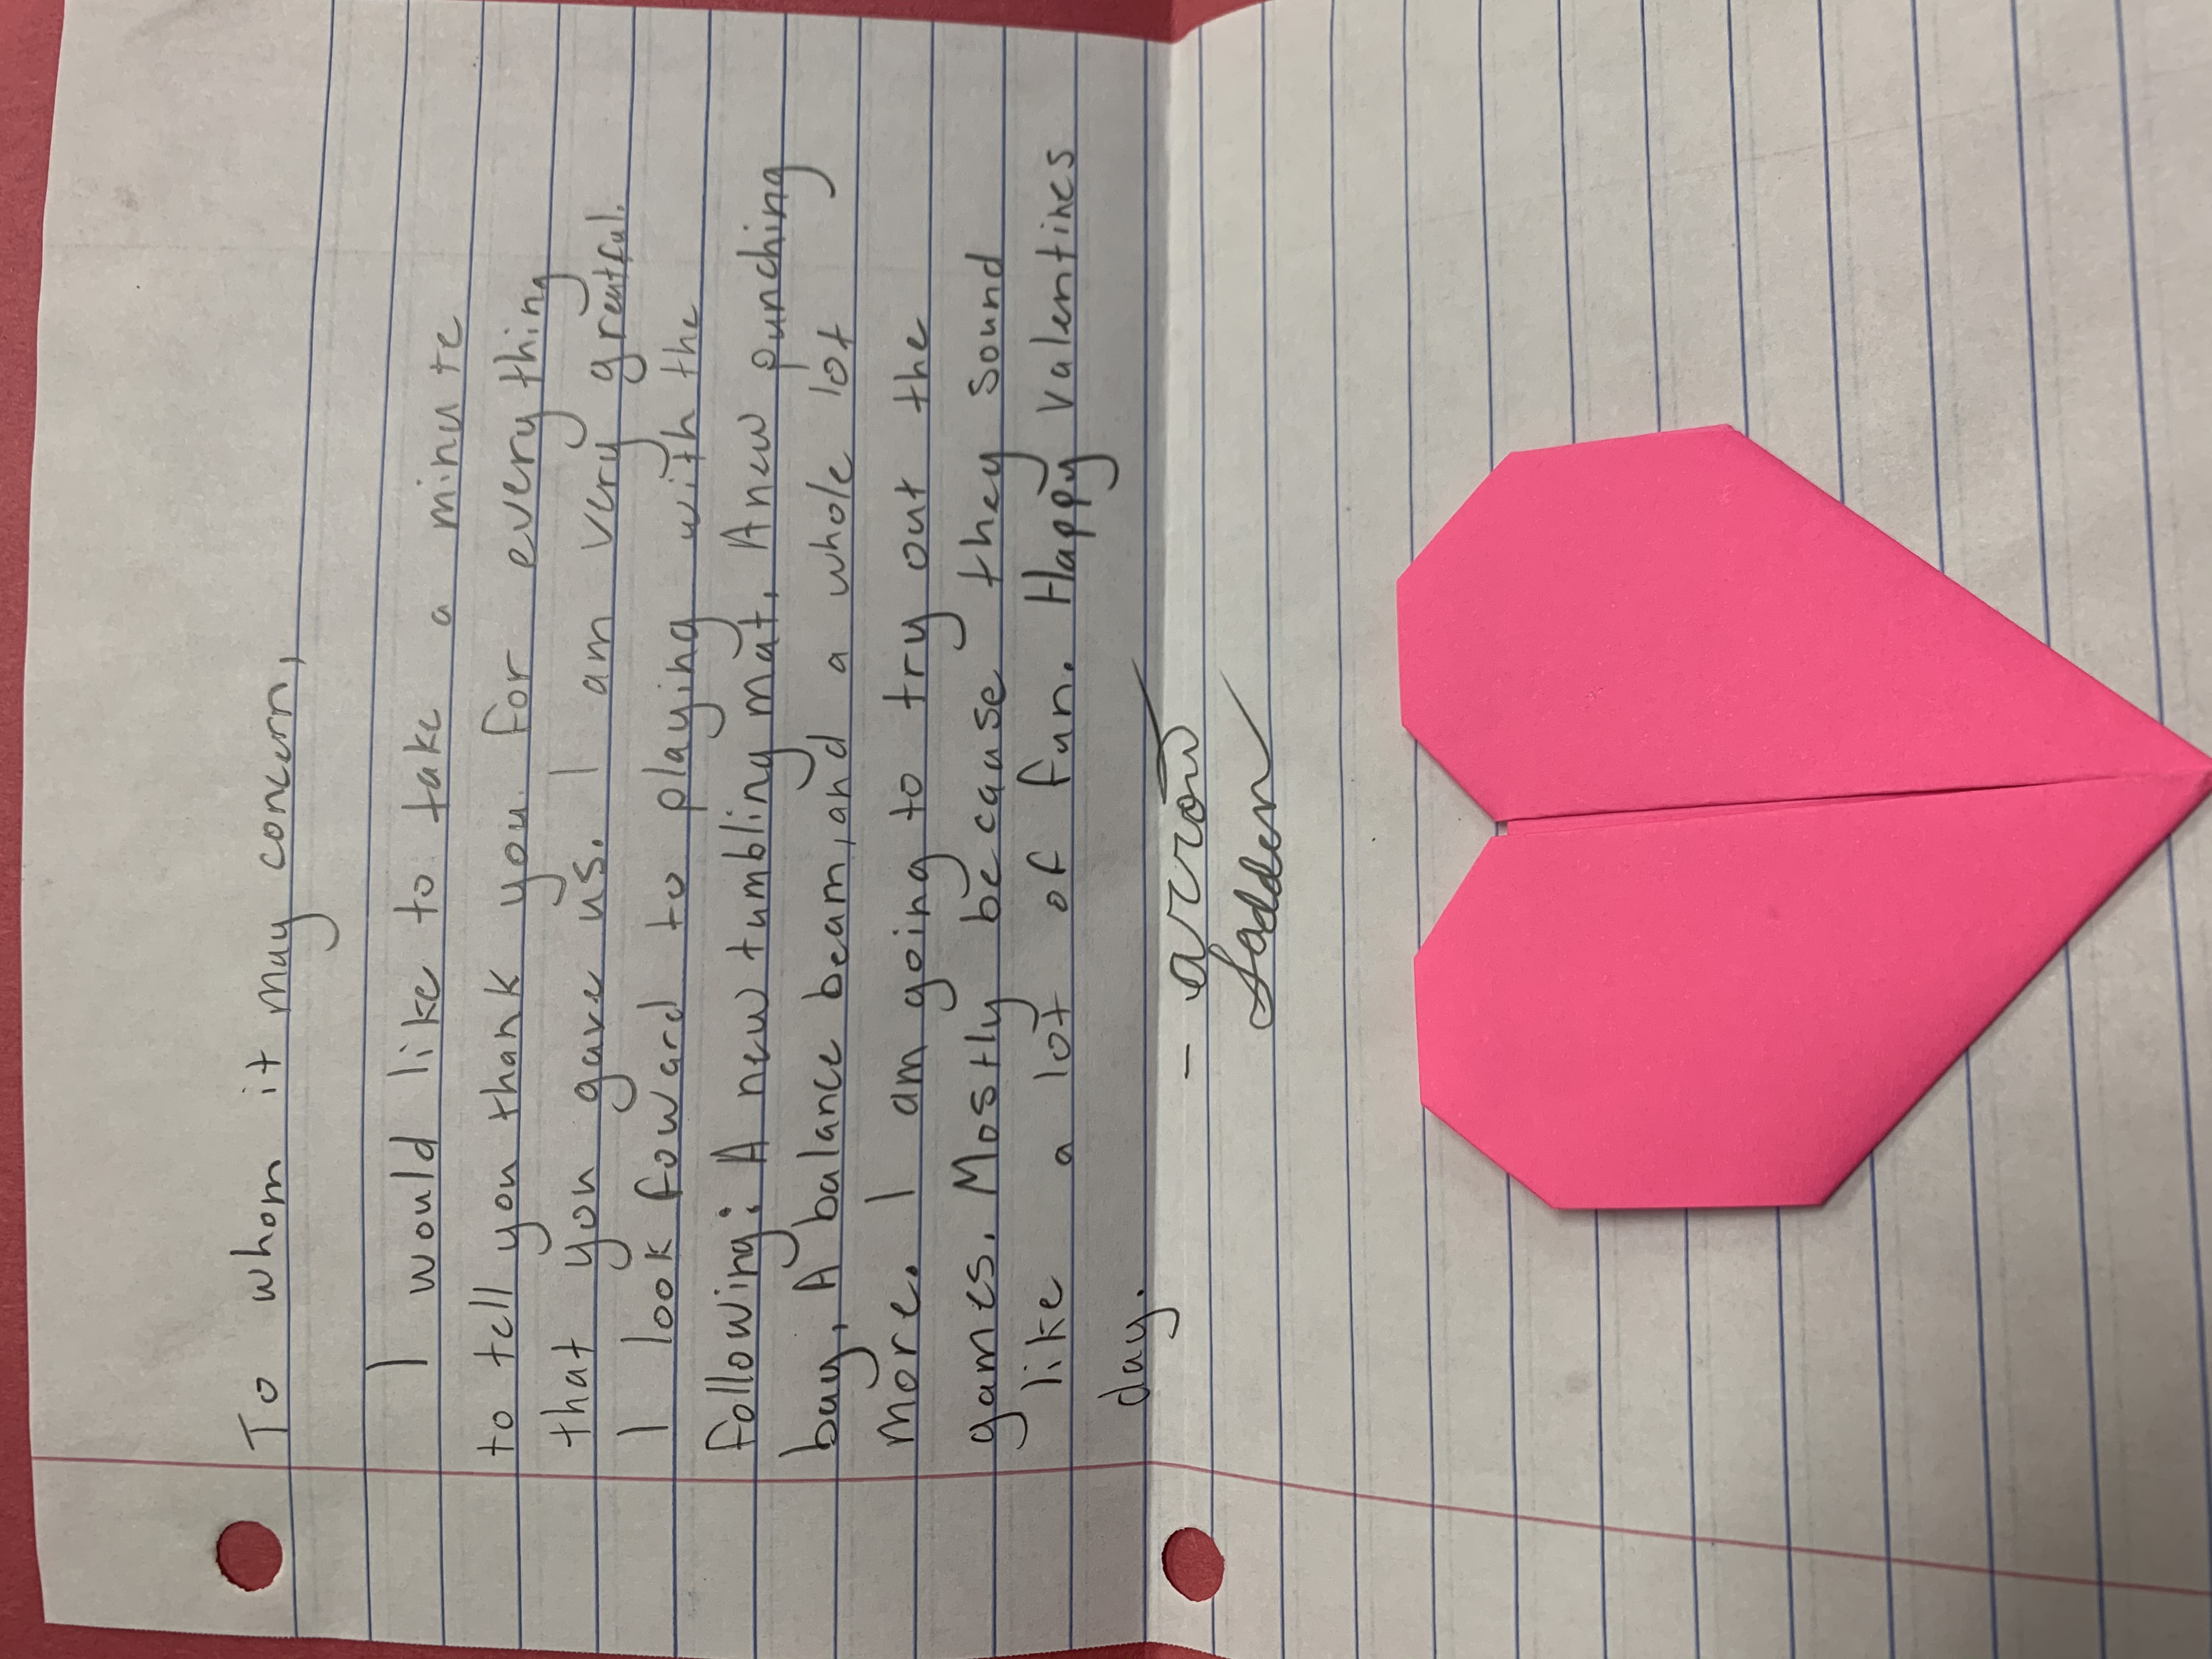 To whom it may concern,
I would like to take a minute
to tell you thank you for everything
that you gave us. I am very greatful.
I look foward to playing with the
following: A new tumbling mat, A new punching
bag, A balance beam, and a whole lot
more. I am going to try out the
games. Mostly because they sound
like a lot of fun. Happy Valentines
day.